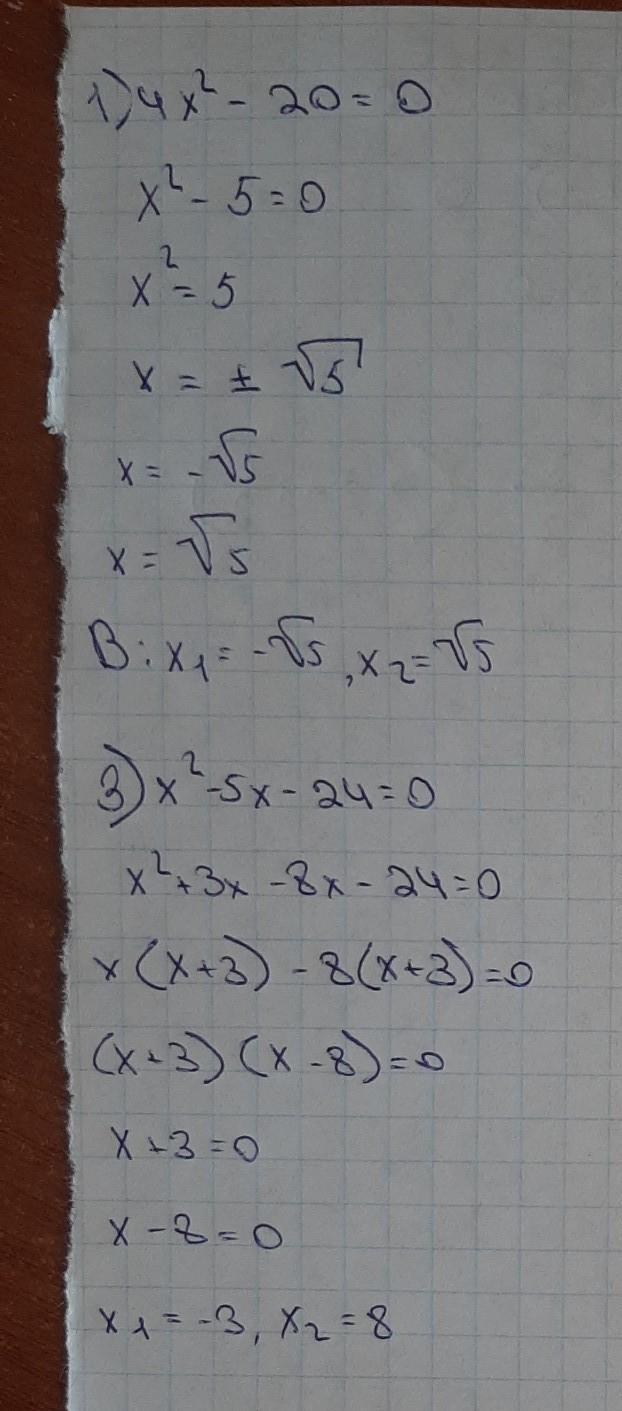 1) 4x² - 20 = 0
x² - 5 = 0
x² = 5
x = ± √5
x = -√5
x = √5
В: x₁ = -√5, x₂ = √5
3) x² - 5x - 24 = 0
x² + 3x - 8x - 24 = 0
x (x + 3) - 8 (x + 3) = 0
(x + 3) (x - 8) = 0
x + 3 = 0
x - 8 = 0
x₁ = -3, x₂ = 8